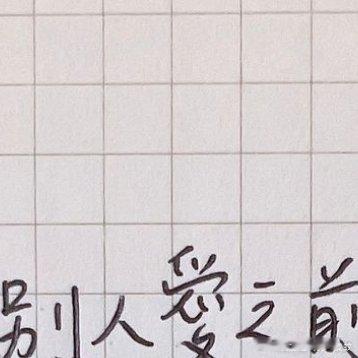 别人愛之前